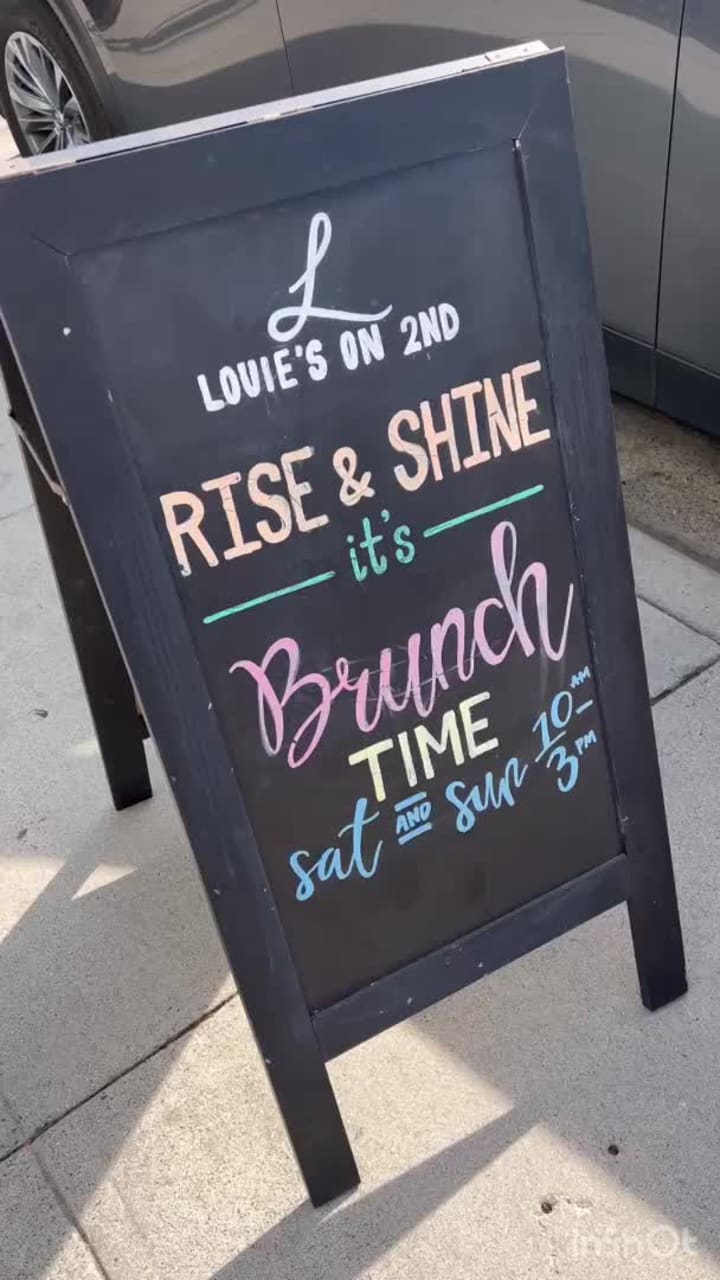 L
LOUIE'S ON 2ND
RISE & SHINE
it's
Brunch
TIME
sat AND sun 10 AM - 3 PM